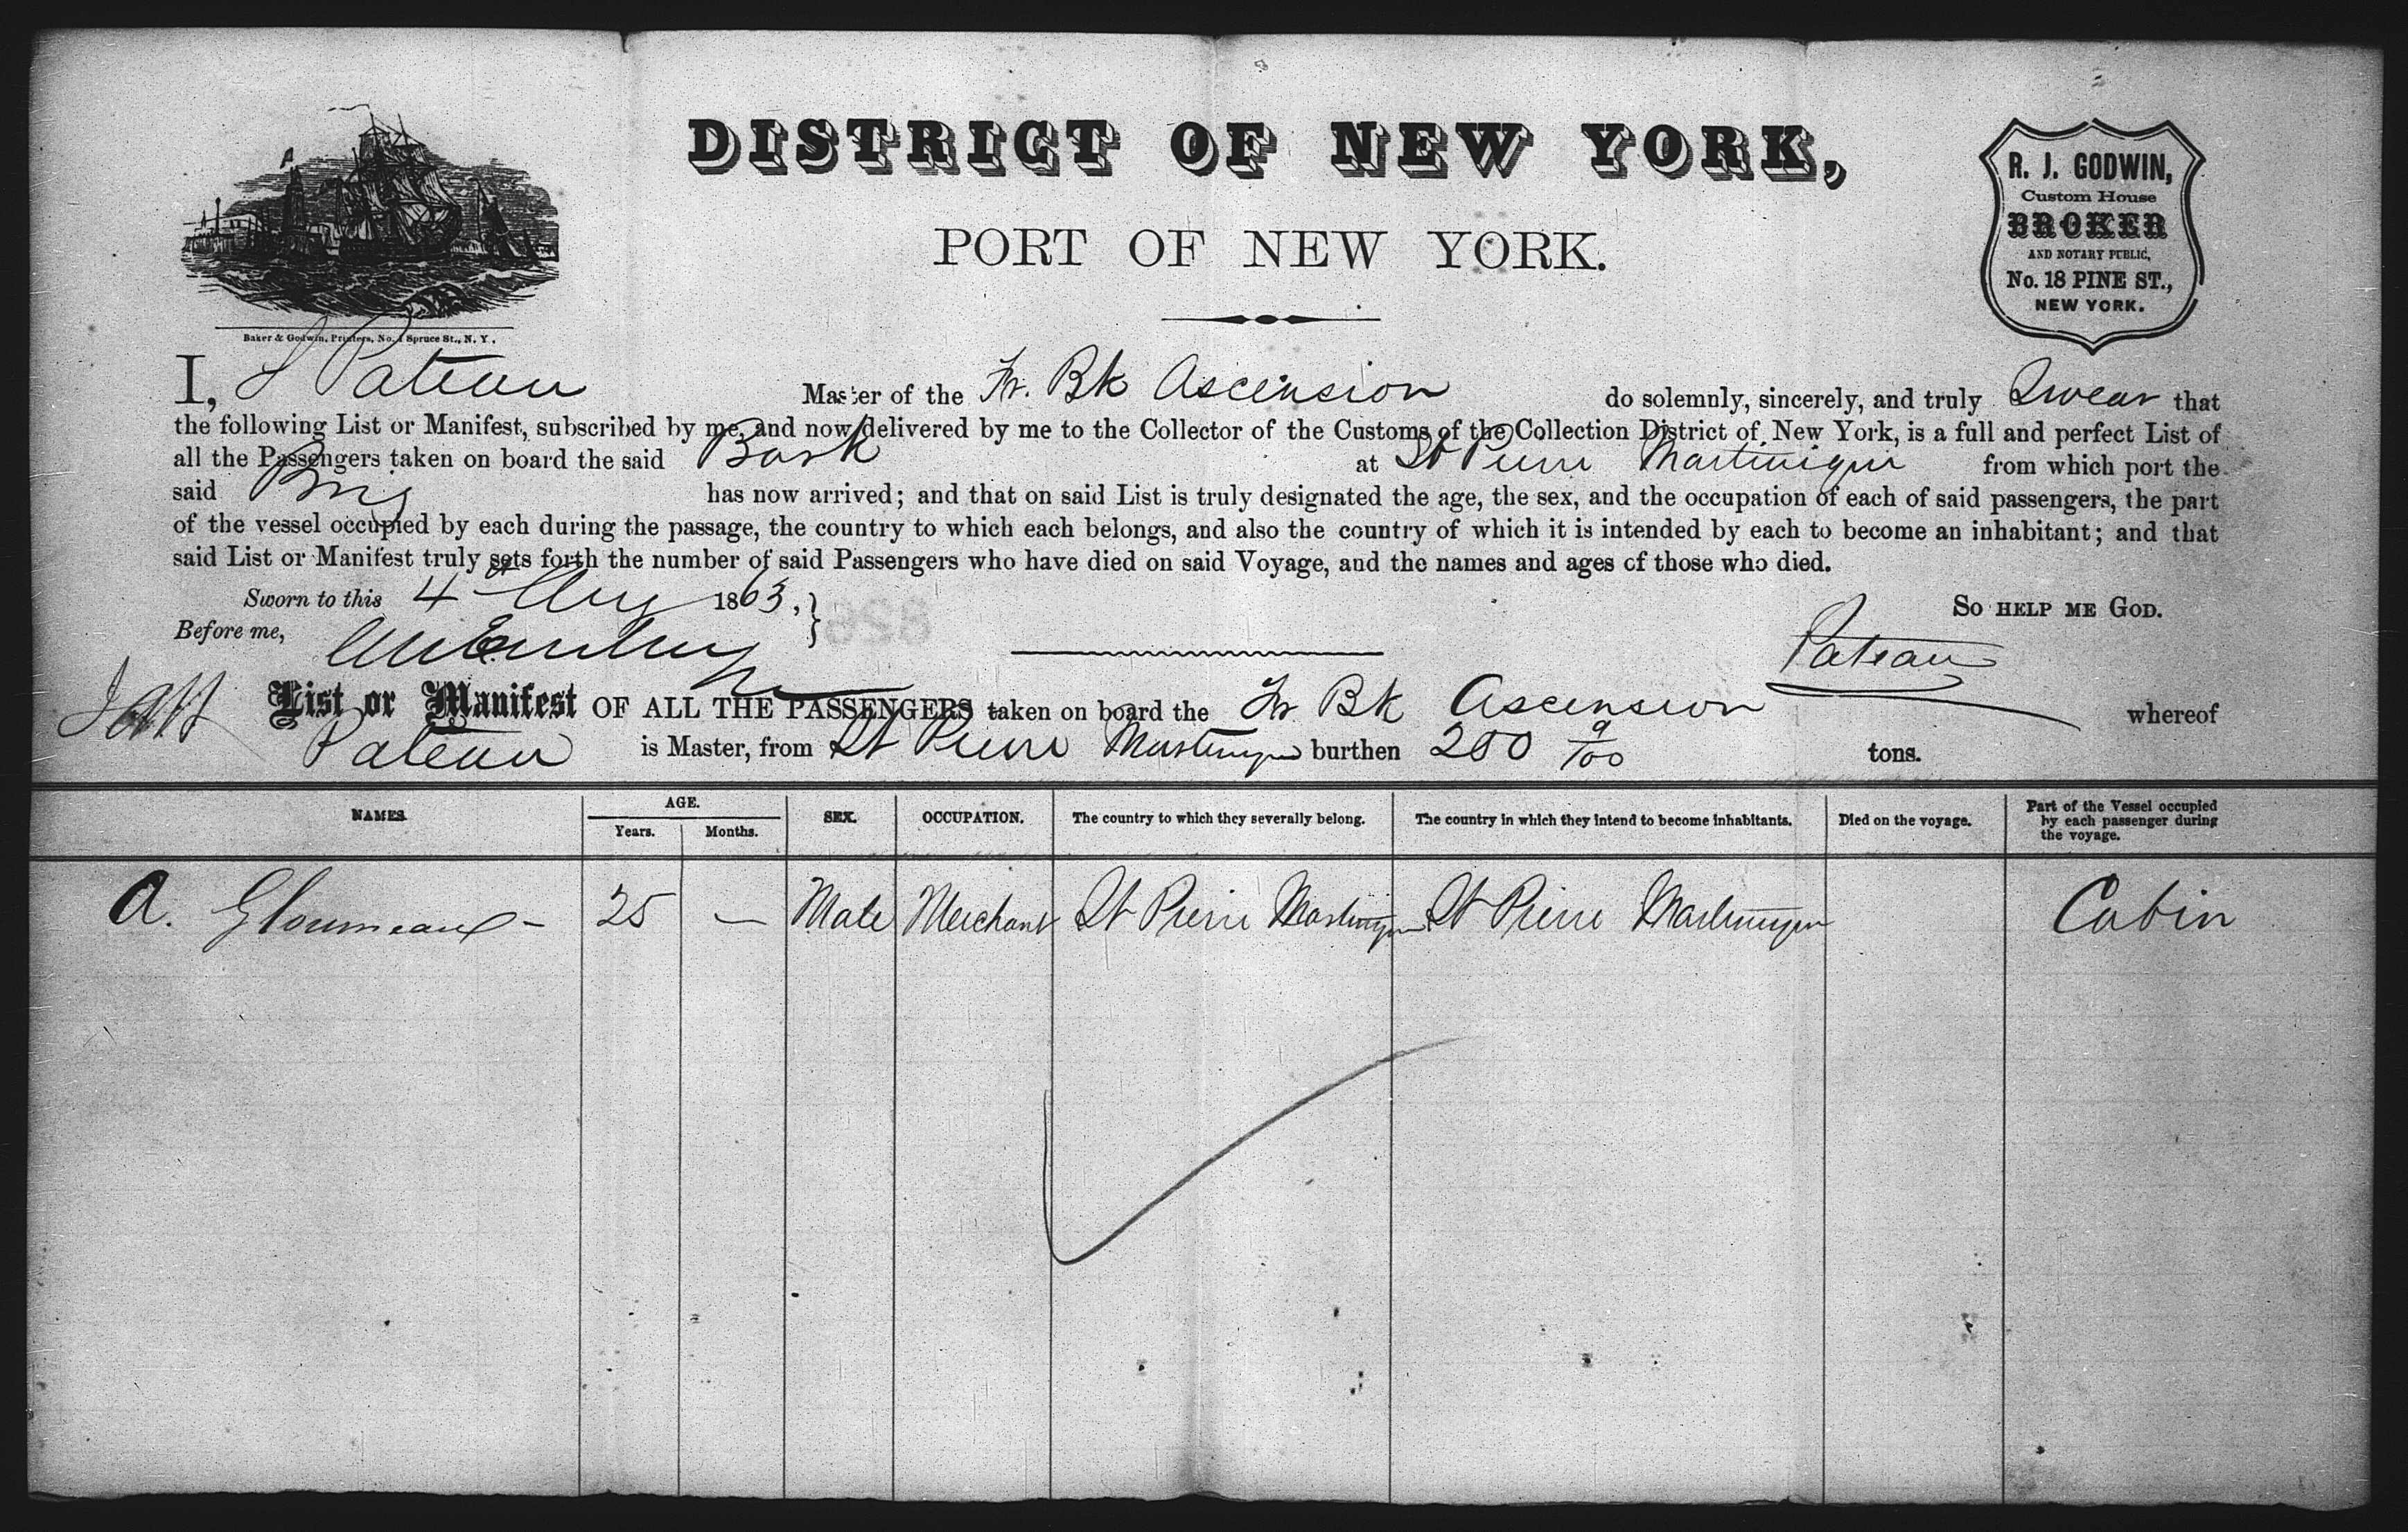 DISTRICT OF NEW YORK,
PORT OF NEW YORK.
R. J. GODWIN,
Custom House
BROKER
AND NOTARY PUBLIC,
No. 18 PINE ST.,
NEW YORK.
Baker & Godwin, Printers, No. 1 Spruce St., N. Y.
I, Pateau Master of the Fr. Bk Ascension do solemnly, sincerely, and truly Swear that
the following List or Manifest, subscribed by me, and now delivered by me to the Collector of the Customs of the Collection District of New York, is a full and perfect List of
all the Passengers taken on board the said Bark at St Pierre Martinique from which port the
said Brig has now arrived; and that on said List is truly designated the age, the sex, and the occupation of each of said passengers, the part
of the vessel occupied by each during the passage, the country to which each belongs, and also the country of which it is intended by each to become an inhabitant; and that
said List or Manifest truly sets forth the number of said Passengers who have died on said Voyage, and the names and ages of those who died.
Sworn to this 4 Aug 1863, SO HELP ME GOD.
Before me,
Pateau
List or Manifest OF ALL THE PASSENGERS taken on board the Fr Bk Ascension whereof
Pateau is Master, from St Pierre Martinique burthen 250 9/100 tons.
NAMES. AGE. Years. Months. SEX. OCCUPATION. The country to which they severally belong. The country in which they intend to become inhabitants. Died on the voyage. Part of the Vessel occupied by each passenger during the voyage.
A. Gloumeaux - 25 — Male Merchant St Pierre Martinique St Pierre Martinique Cabin